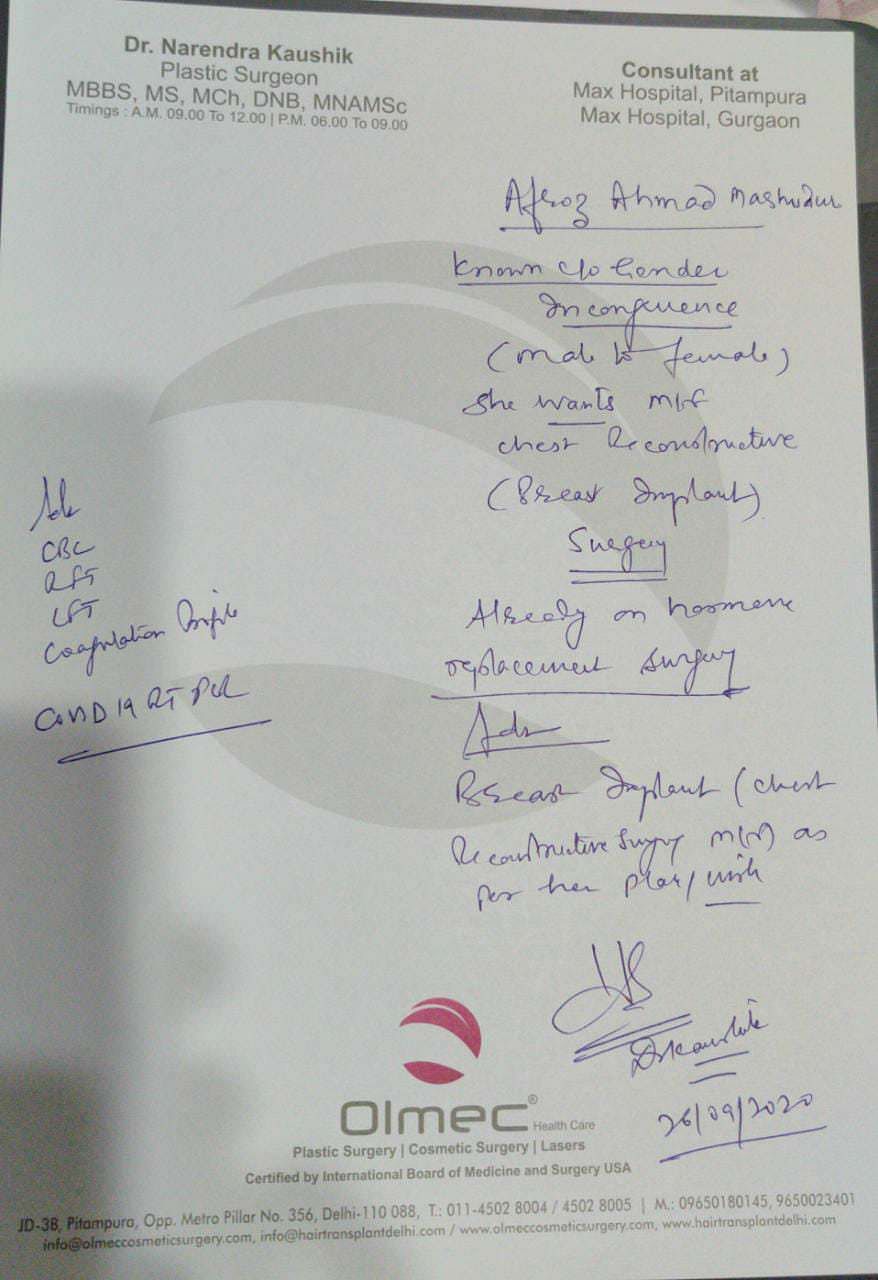 Dr. Narendra Kaushik
Plastic Surgeon
MBBS, MS, MCh, DNB, MNAMSc
Timings : A.M. 09.00 To 12.00 | P.M. 06.00 To 09.00
Consultant at
Max Hospital, Pitampura
Max Hospital, Gurgaon
Afroz Ahmad
Known c/o Gender
Incongruence
(male to female)
She wants
chest Reconstructive
(Breast Implant)
Surgery
Already on hormone
replacement surgery
Adv
Breast Implant (chest
Reconstructive Surgery as
per her plan/wish
Adv
CBC
RFT
LFT
Coagulation Profile
COVID 19 RT PCR
Dr Kaushik
26/09/2020
Olmec®
Health Care
Plastic Surgery | Cosmetic Surgery | Lasers
Certified by International Board of Medicine and Surgery USA
JD-3B, Pitampura, Opp. Metro Pillar No. 356, Delhi-110 088, T.: 011-4502 8004 / 4502 8005 | M.: 09650180145, 9650023401
info@olmeccosmeticsurgery.com, info@hairtransplantdelhi.com / www.olmeccosmeticsurgery.com, www.hairtransplantdelhi.com